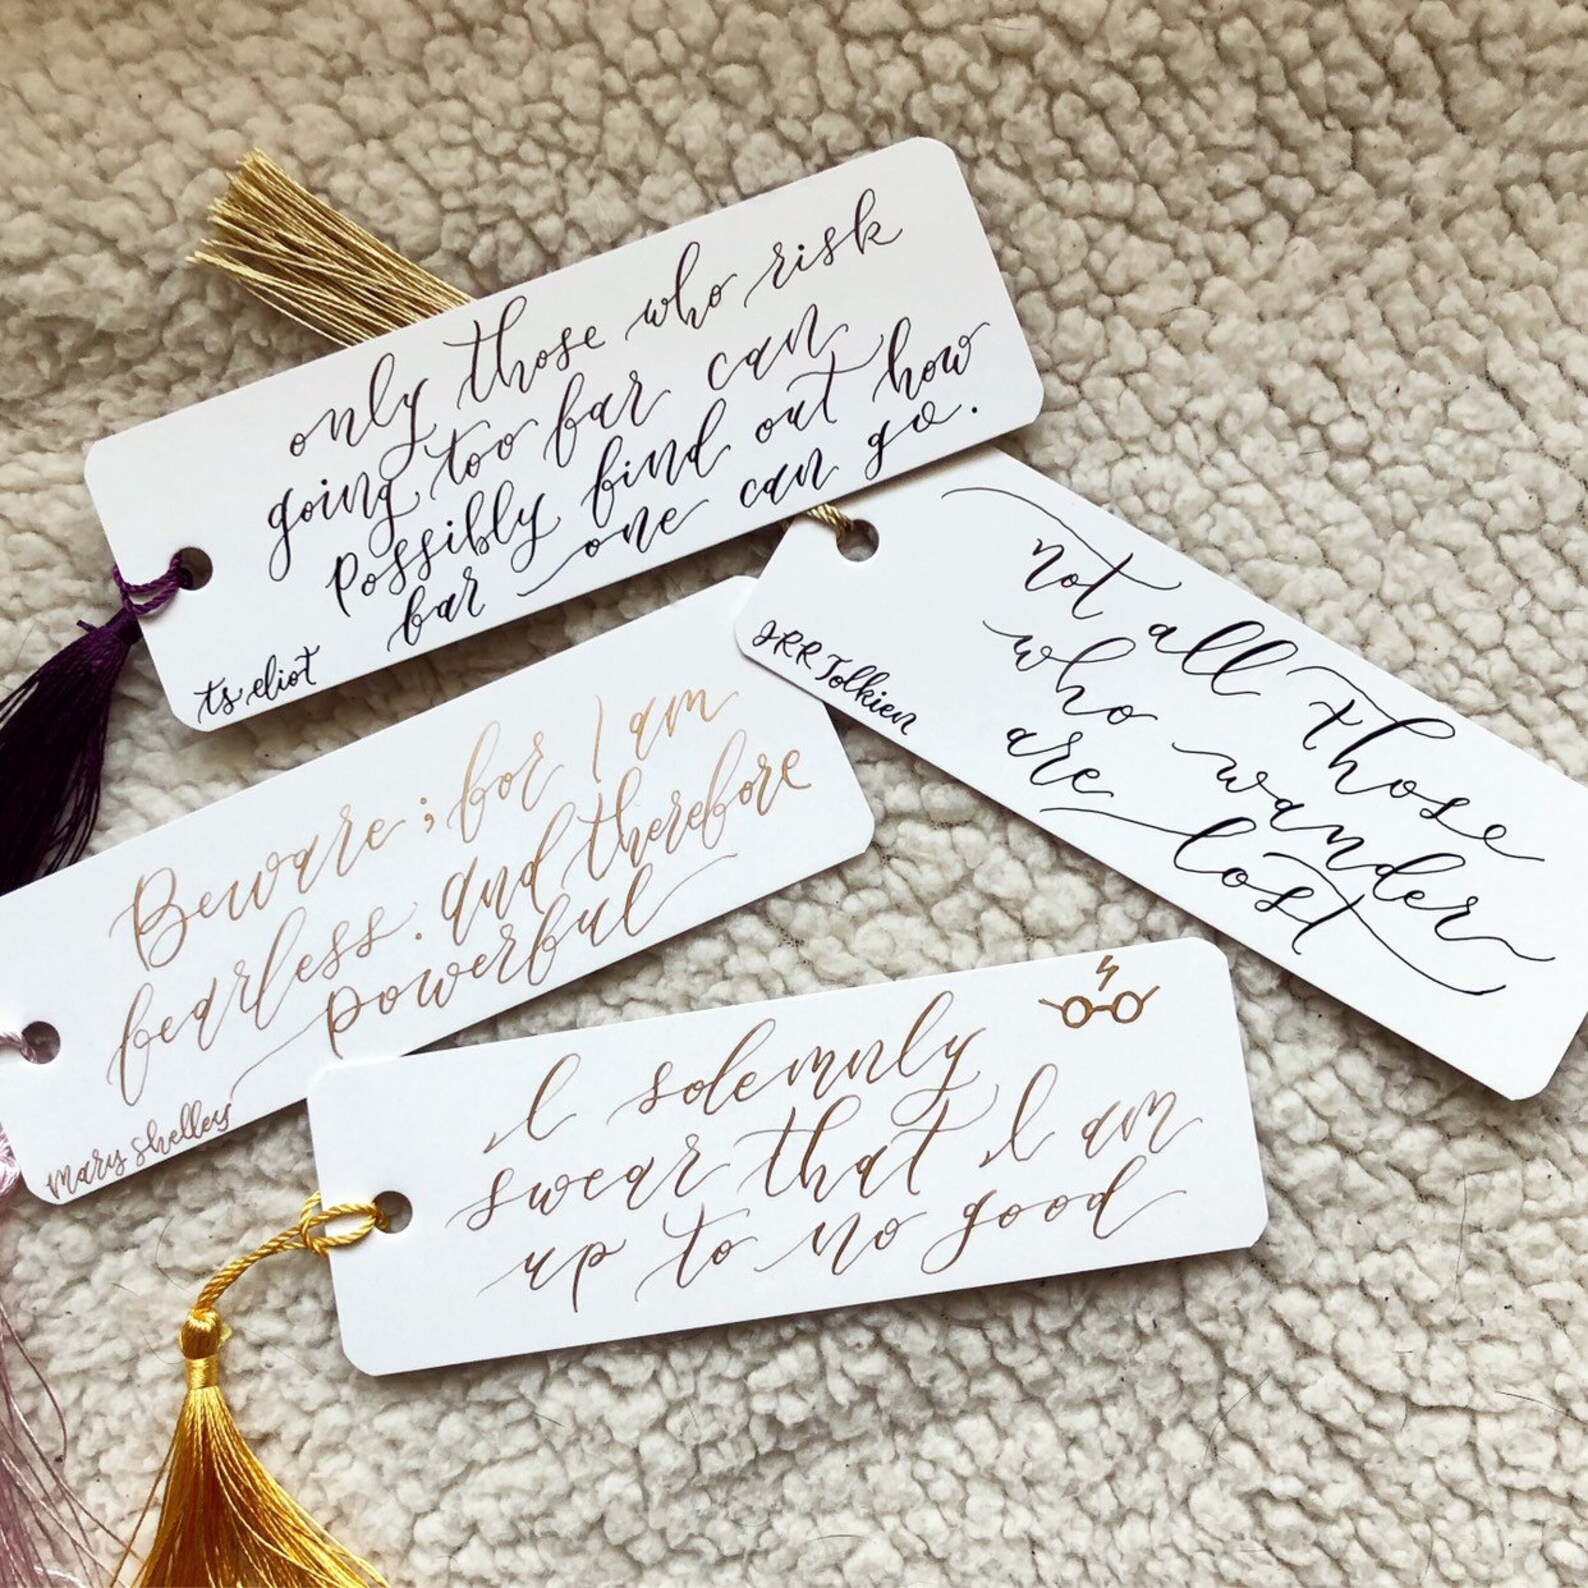 only those who risk
going too far can
possibly find out how
far one can go.
ts eliot
not all those
who wander
are lost
JRR Tolkien
Beware; for I am
fearless. and therefore
powerful
mary shelley
I solemnly
swear that I am
up to no good